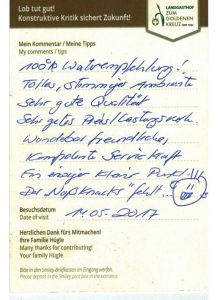 Lob tut gut!
Konstruktive Kritik sichert Zukunft!
LANDGASTHOF
ZUM
GOLDENEN
KREUZ
Mein Kommentar / Meine Tipps
My comments / tips
100% Weiterempfehlung!
Tolles, stimmiges Ambiente
Sehr gute Qualität
Sehr gutes Preis/Leistungsverh.
Wunderbar freundliche,
kompetente Servicekraft
Ein einziger kleiner Punkt!!!
Der "Nußknacker" fehlt...
Besuchsdatum
Date of visit
14.05.2017
Herzlichen Dank fürs Mitmachen!
Ihre Familie Hügle
Many thanks for contributing!
Your family Hügle
Bitte in den Smiley-Briefkasten im Eingang werfen.
Please deposit in the Smiley post box in the entrance.